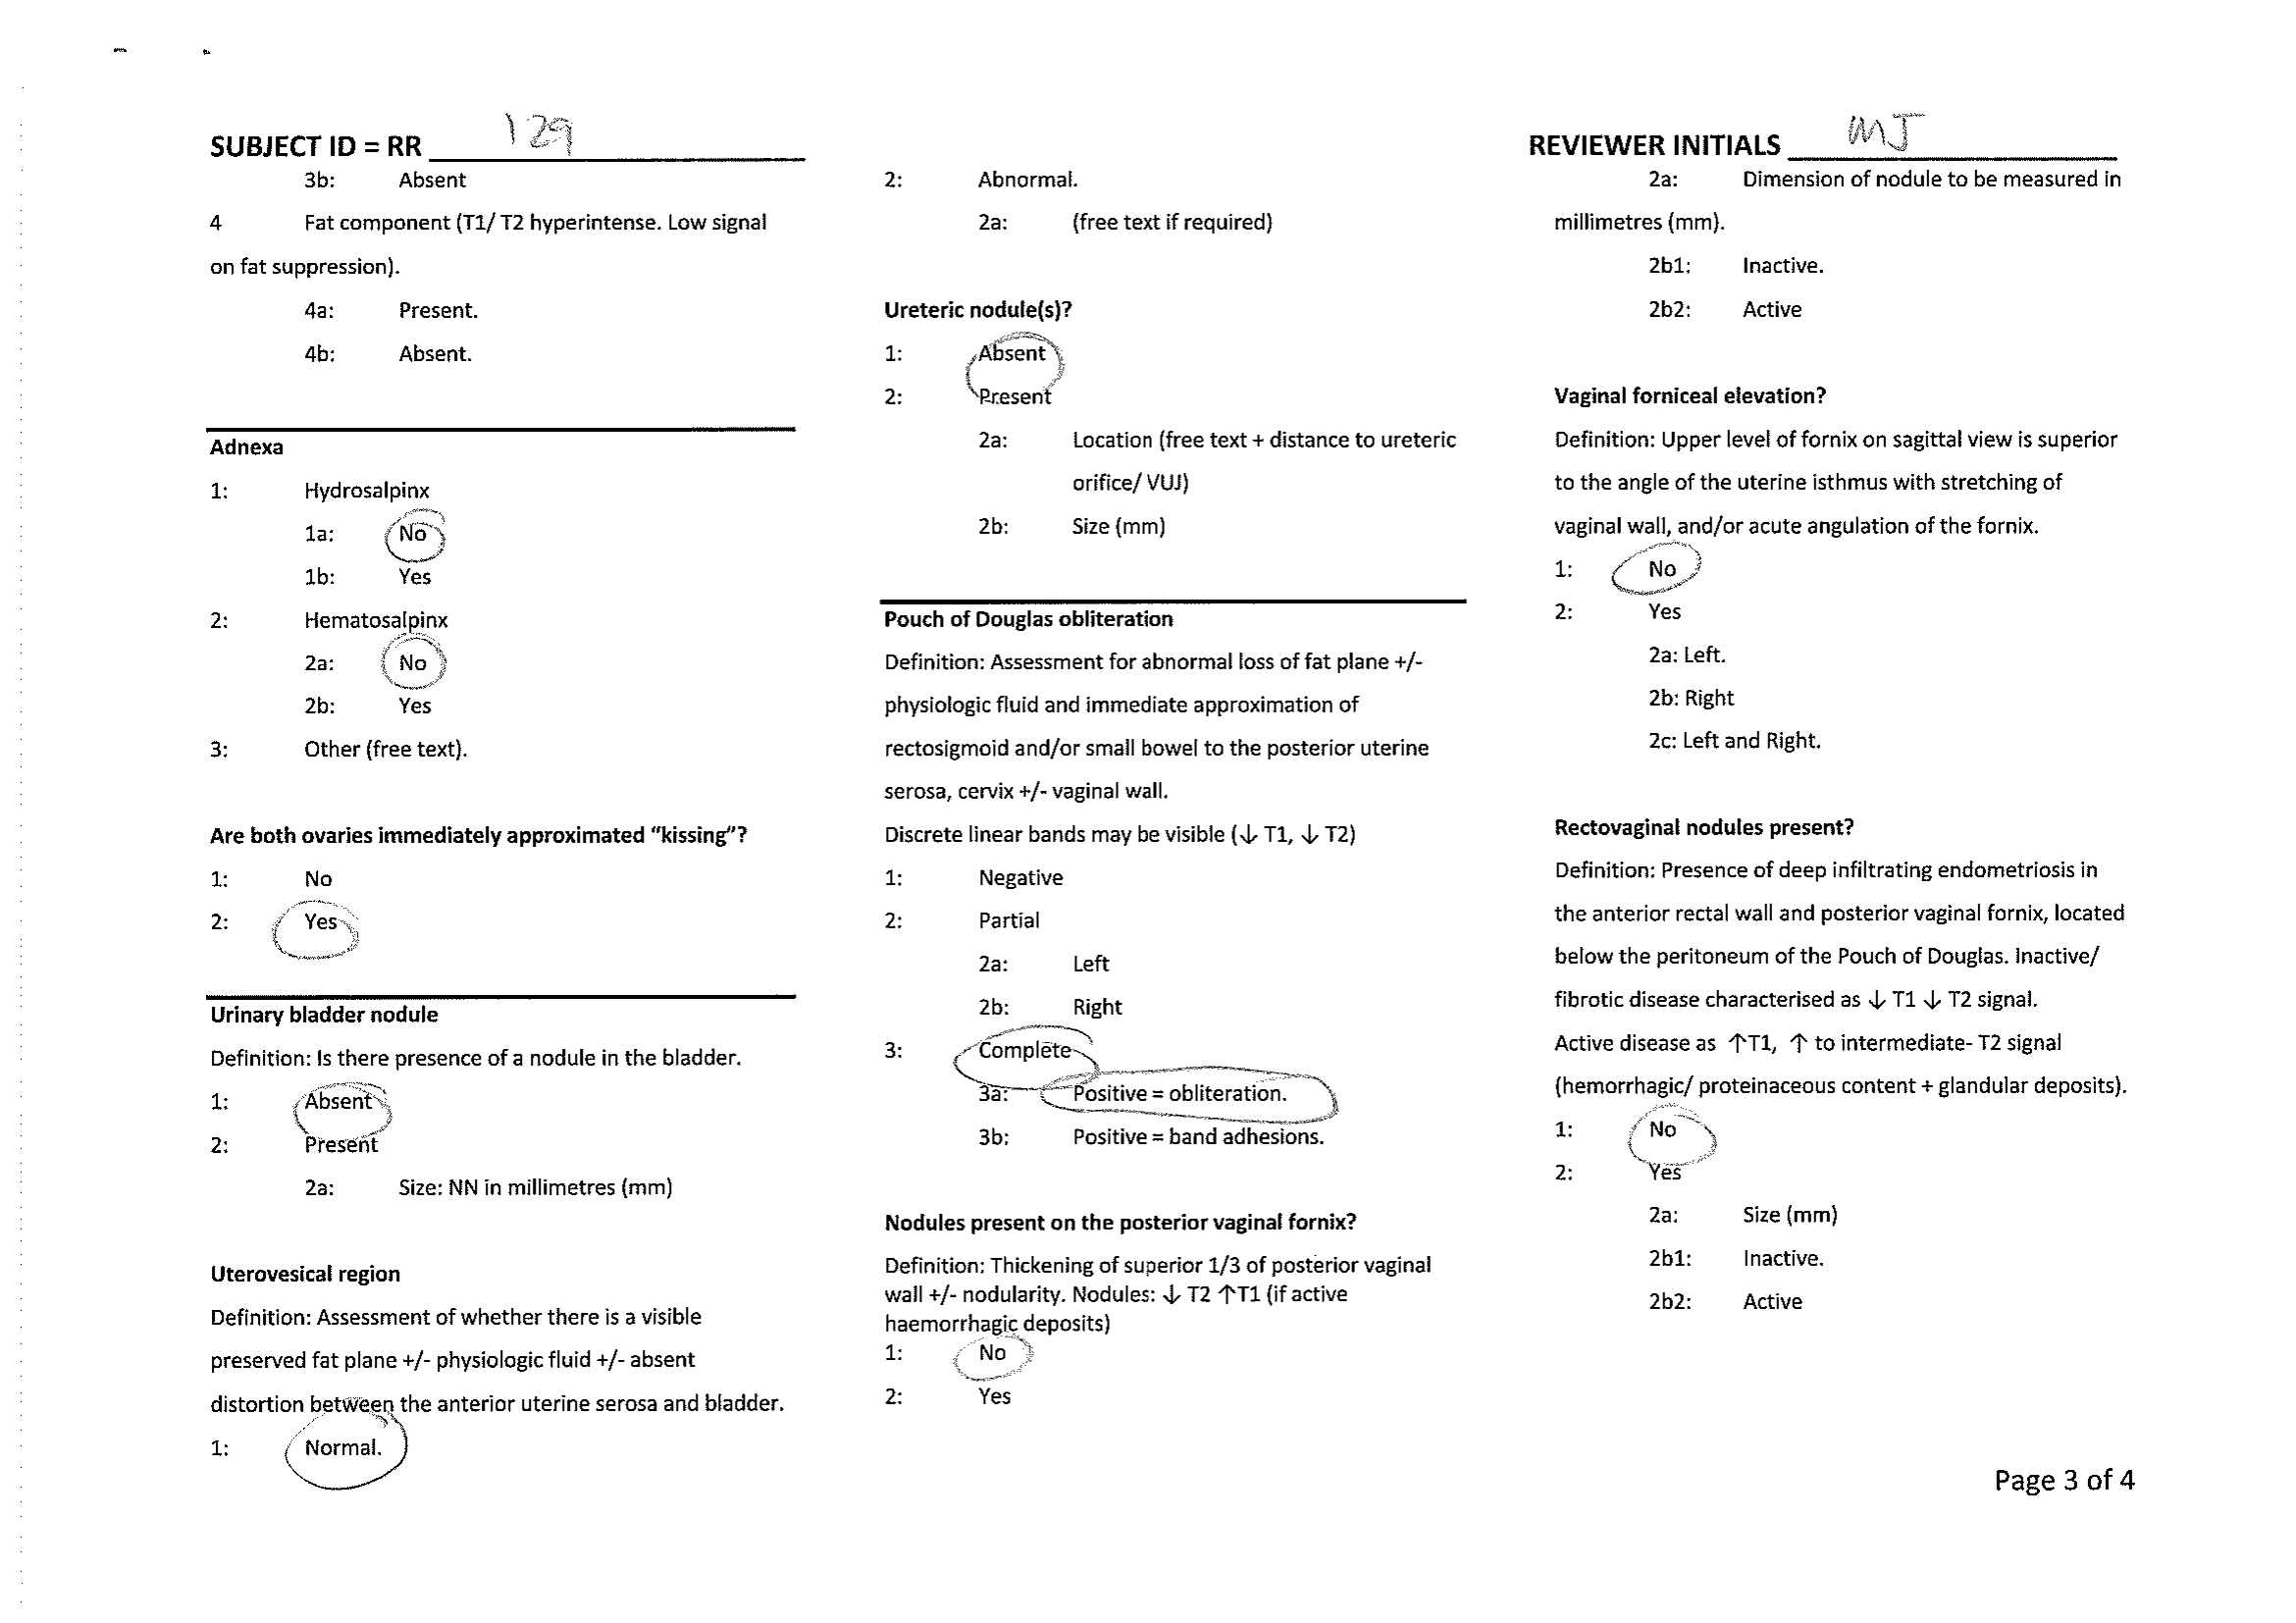 SUBJECT ID = RR 129
3b: Absent
4 Fat component (T1/ T2 hyperintense. Low signal
on fat suppression).
4a: Present.
4b: Absent.
Adnexa
1: Hydrosalpinx
1a: No
1b: Yes
2: Hematosalpinx
2a: No
2b: Yes
3: Other (free text).
Are both ovaries immediately approximated “kissing”?
1: No
2: Yes
Urinary bladder nodule
Definition: Is there presence of a nodule in the bladder.
1: Absent
2: Present
2a: Size: NN in millimetres (mm)
Uterovesical region
Definition: Assessment of whether there is a visible
preserved fat plane +/- physiologic fluid +/- absent
distortion between the anterior uterine serosa and bladder.
1: Normal.
2: Abnormal.
2a: (free text if required)
Ureteric nodule(s)?
1: Absent
2: Present
2a: Location (free text + distance to ureteric
orifice/ VUJ)
2b: Size (mm)
Pouch of Douglas obliteration
Definition: Assessment for abnormal loss of fat plane +/-
physiologic fluid and immediate approximation of
rectosigmoid and/or small bowel to the posterior uterine
serosa, cervix +/- vaginal wall.
Discrete linear bands may be visible (↓ T1, ↓ T2)
1: Negative
2: Partial
2a: Left
2b: Right
3: Complete
3a: Positive = obliteration.
3b: Positive = band adhesions.
Nodules present on the posterior vaginal fornix?
Definition: Thickening of superior 1/3 of posterior vaginal
wall +/- nodularity. Nodules: ↓ T2 ↑T1 (if active
haemorrhagic deposits)
1: No
2: Yes
REVIEWER INITIALS MJ
2a: Dimension of nodule to be measured in
millimetres (mm).
2b1: Inactive.
2b2: Active
Vaginal forniceal elevation?
Definition: Upper level of fornix on sagittal view is superior
to the angle of the uterine isthmus with stretching of
vaginal wall, and/or acute angulation of the fornix.
1: No
2: Yes
2a: Left.
2b: Right
2c: Left and Right.
Rectovaginal nodules present?
Definition: Presence of deep infiltrating endometriosis in
the anterior rectal wall and posterior vaginal fornix, located
below the peritoneum of the Pouch of Douglas. Inactive/
fibrotic disease characterised as ↓ T1 ↓ T2 signal.
Active disease as ↑T1, ↑ to intermediate- T2 signal
(hemorrhagic/ proteinaceous content + glandular deposits).
1: No
2: Yes
2a: Size (mm)
2b1: Inactive.
2b2: Active
Page 3 of 4